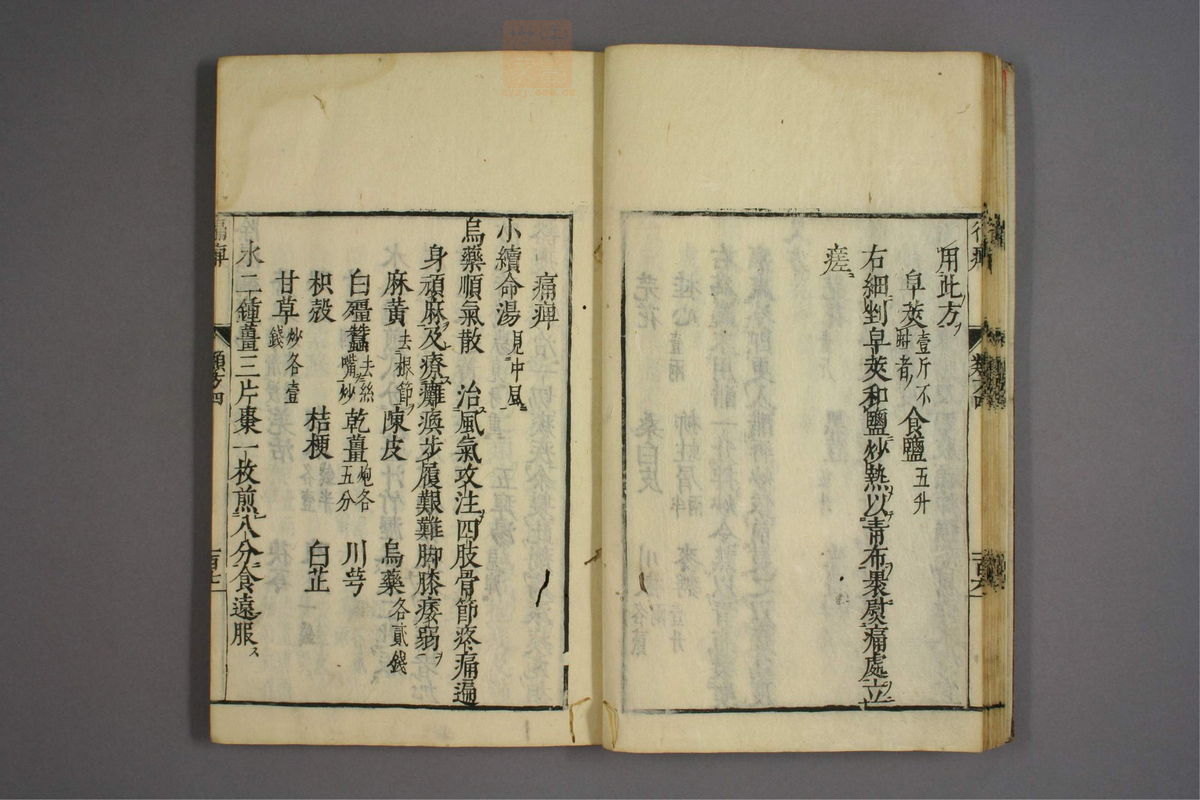 用此方ヲ
皁莢壹斤不蛀者食鹽五升
右細剉皁莢和鹽炒熱以青布褁熨痛處立
瘥
類方四
痛痺
小續命湯見中風
烏藥順氣散 治風氣攻注四肢骨節疼痛遍
身頑麻及療癱瘓步履艱難脚膝痿弱
麻黃去根節 陳皮 烏藥各貳錢
白殭蠶去絲嘴炒 乾薑炮各五分 川芎
枳殼 桔梗 白芷
甘草炒各壹錢
水二鍾薑三片棗一枚煎八分食遠服
痛痺 類方四